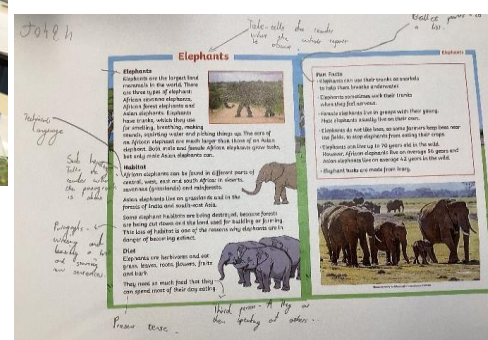 Title - tells the reader
what the whole report
is about.
Bullet points - is
a list.
Elephants
Elephants
Elephants
Elephants are the largest land
mammals in the world. There
are three types of elephant:
African savanna elephants,
African forest elephants and
Asian elephants. Elephants
have trunks, which they use
for smelling, breathing, making
sounds, squirting water and picking things up. The ears of
an African elephant are much larger than those of an Asian
elephant. Both male and female African elephants grow tusks,
but only male Asian elephants can.
Habitat
African elephants can be found in different parts of
central, west, east and south Africa: in deserts,
savannas (grasslands) and rainforests.
Asian elephants live on grasslands and in the
forests of India and south-east Asia.
Some elephant habitats are being destroyed, because forests
are being cut down and the land used for building or farming.
This loss of habitat is one of the reasons why elephants are in
danger of becoming extinct.
Diet
Elephants are herbivores and eat
grass, leaves, roots, flowers, fruits
and bark.
They need so much food that they
can spend most of their day eating.
Fun Facts
Elephants can use their trunks as snorkels
to help them breathe underwater.
Elephants sometimes suck their trunks
when they feel nervous.
Female elephants live in groups with their young.
Male elephants usually live on their own.
Elephants do not like bees, so some farmers keep bees near
their fields, to stop elephants from eating their crops.
Elephants can live up to 70 years old in the wild.
However, African elephants live on average 56 years and
Asian elephants live on average 42 years in the wild.
Elephant tusks are made from ivory.
Technical
language
Sub
Tells the
reader
the paragraph
is about
Paragraphs
writing
and
new sentences
Present tense
Third person